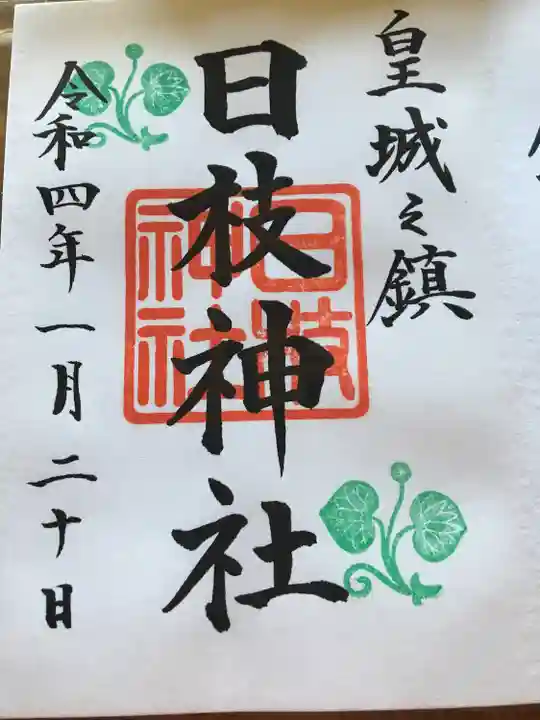 皇城之鎮
日枝神社
日枝神社
令和四年一月二十日